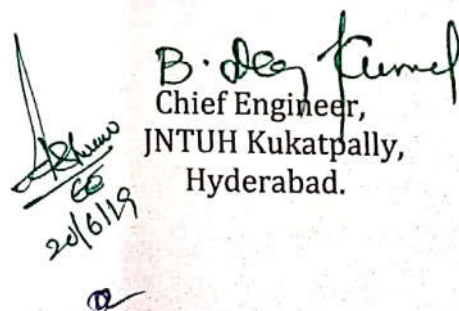 B.
Kumar
Chief Engineer,
JNTUH Kukatpally,
Hyderabad.
EE
20/6/19